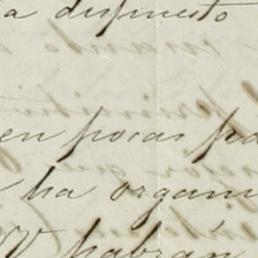 a dispuesto
en pocas pa
ha organi
V habrán